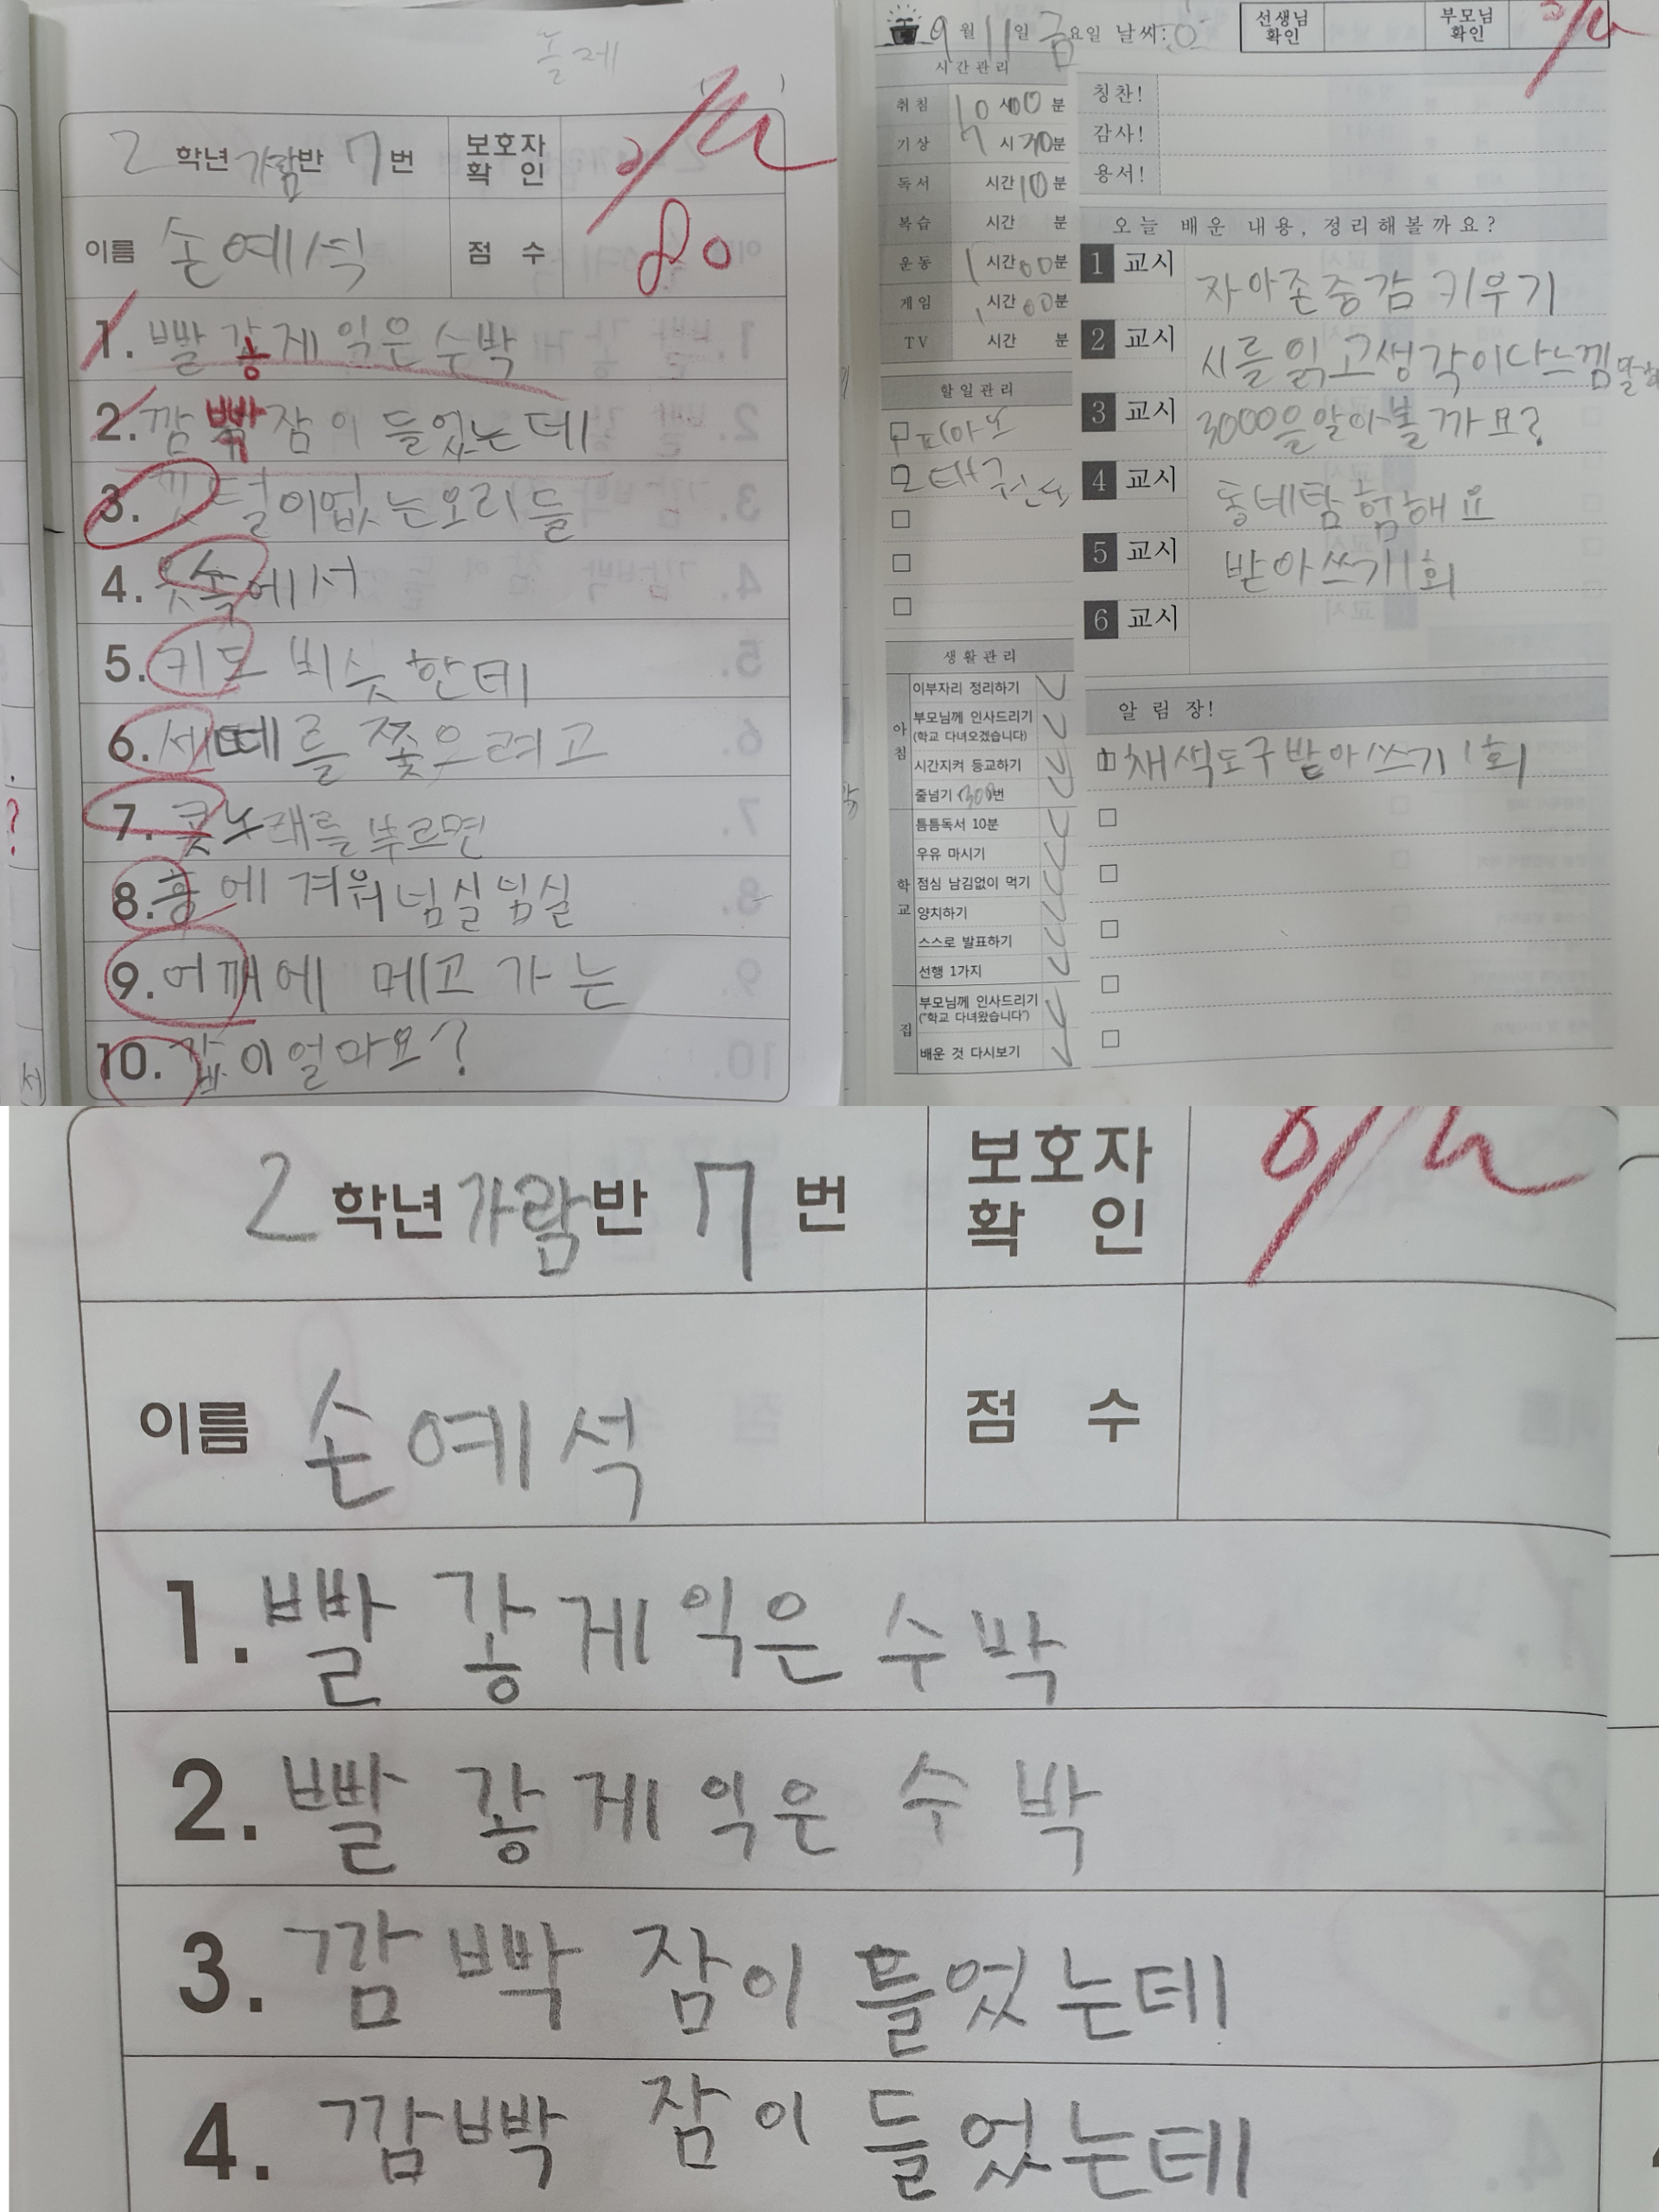 2 학년 가람반 7번 보호자 확인
이름 손예석 점수 80
1. 빨갛게 익은 수박
2. 깜빡 잠이 들었는데
3. 깃털이 없는 오리들
4. 옷 속에서
5. 키도 비슷한데
6. 세떼를 쫓으려고
7. 콧노래를 부르면
8. 흥에 겨워 넘실넘실
9. 어깨에 메고 가는
10. 값이 얼마요?
9월 11일 금요일 날씨: 선생님 확인 부모님 확인
시간관리
취침 10시 00분
기상 7시 30분
독서 시간 10분
복습 시간 분
운동 1시간 00분
게임 1시간 00분
TV 시간 분
할일관리
피아노
태권도
생활관리
아침
이부자리 정리하기
부모님께 인사드리기
(학교 다녀오겠습니다)
시간지켜 등교하기
줄넘기 300번
학교
틈틈독서 10분
우유 마시기
점심 남김없이 먹기
양치하기
스스로 발표하기
선행 1가지
집
부모님께 인사드리기
("학교 다녀왔습니다")
배운 것 다시보기
칭찬!
감사!
용서!
오늘 배운 내용, 정리해볼까요?
1 교시 자아존중감 키우기
2 교시 시를 읽고 생각이나 느낌
3 교시 3000을 알아볼까요?
4 교시 동네탐험해요
5 교시 받아쓰기 1회
6 교시
알림장!
채색도구 받아쓰기 1회
2 학년 가람반 7번 보호자 확인
이름 손예석 점수
1. 빨갛게 익은 수박
2. 빨갛게 익은 수박
3. 깜빡 잠이 들었는데
4. 깜빡 잠이 들었는데